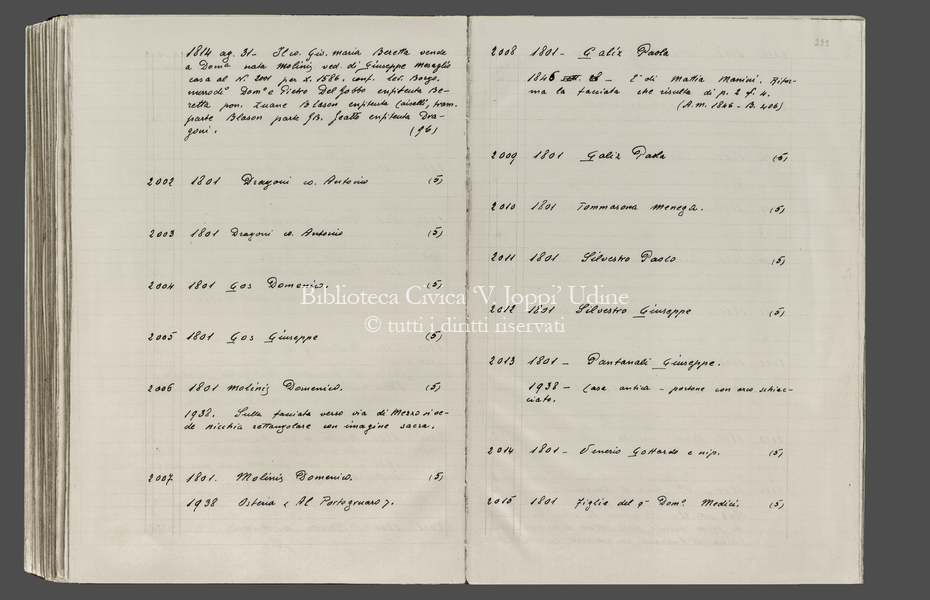 1814 ag. 31 - Il co. Gio. Maria Beretta vende
a Doma nata Molinis ved. di Giuseppe
casa al N. 2001 per L. 1586. conf. lev. Borgo,
Domo e Pietro Del Gobbo enfiteuta Be-
retta pon. Zuane Blason enfiteuta Caiselli, tram.
parte Blason parte GB. Featto enfiteuta Dra-
goni. (96)
2002 1801 Dragoni co. Antonio (5)
2003 1801 Dragoni co. Antonio (5)
2004 1801 Gos Domenico. (5)
2005 1801 Gos Giuseppe (5)
2006 1801 Molinis Domenico. (5)
1938. Sulla facciata verso via di Mezzo si ve-
de nicchia rettangolare con imagine sacra.
2007 1801. Molinis Domenico. (5)
1938 Osteria « Al Portogruaro ».
233
2008 1801 - Galix Paola
1846 - E' di Mattia Manini. Rifor-
ma la facciata che risulta di p. 2 f. 4.
(A.m. 1846 - B. 406)
2009 1801 Galix Paola (5)
2010 1801 Tommasona Menega. (5)
2011 1801 Silvestro Paolo (5)
2012 1801 Silvestro Giuseppe (5)
2013 1801 - Pantanali Giuseppe.
1938 - Casa antica - portone con arco schiac-
ciato.
2014 1801 - Venerio Gottardo e nip. (5)
2015 1801 Figlie del q. Dom. Medici. (5)
Biblioteca Civica 'V. Joppi' Udine
© tutti i diritti riservati